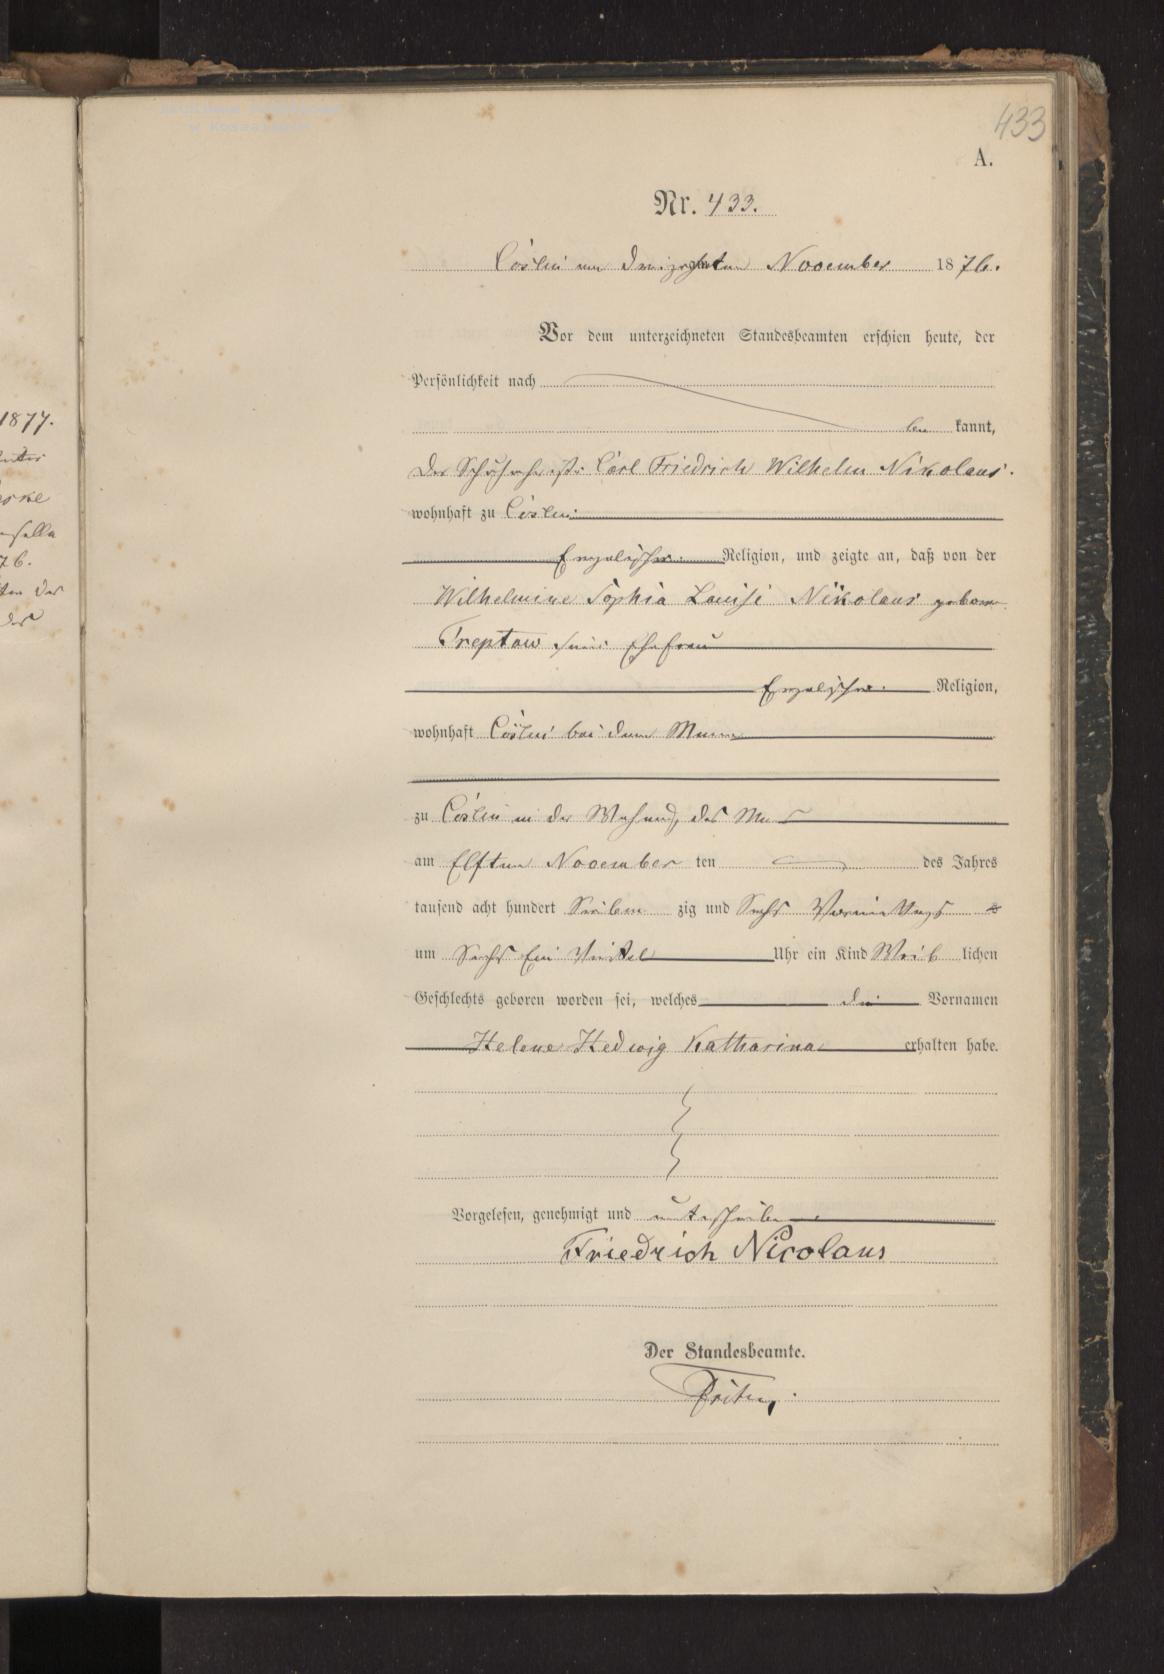 433
A.
Nr. 433.
Cöslin am dreizehnten November 1876.
Vor dem unterzeichneten Standesbeamten erschien heute, der
Persönlichkeit nach
be kannt,
der Carl Friedrich Wilhelm Nikolaus.
wohnhaft zu Cöslin
Religion, und zeigte an, daß von der
Wilhelmine Sophia Louise Nikolaus geborne
Treptow seine Ehefrau
Religion,
wohnhaft Cöslin bei dem Manne
zu Cöslin in der Wohnung des
am Elften November ten des Jahres
tausend acht hundert Sieben zig und Sechs Vormittags
um Sechs Ein Viertel Uhr ein Kind Weib lichen
Geschlechts geboren worden sei, welches die Vornamen
Helene Hedwig Katharina erhalten habe.
Vorgelesen, genehmigt und unterschrieben
Friedrich Nicolaus
Der Standesbeamte.
1877.